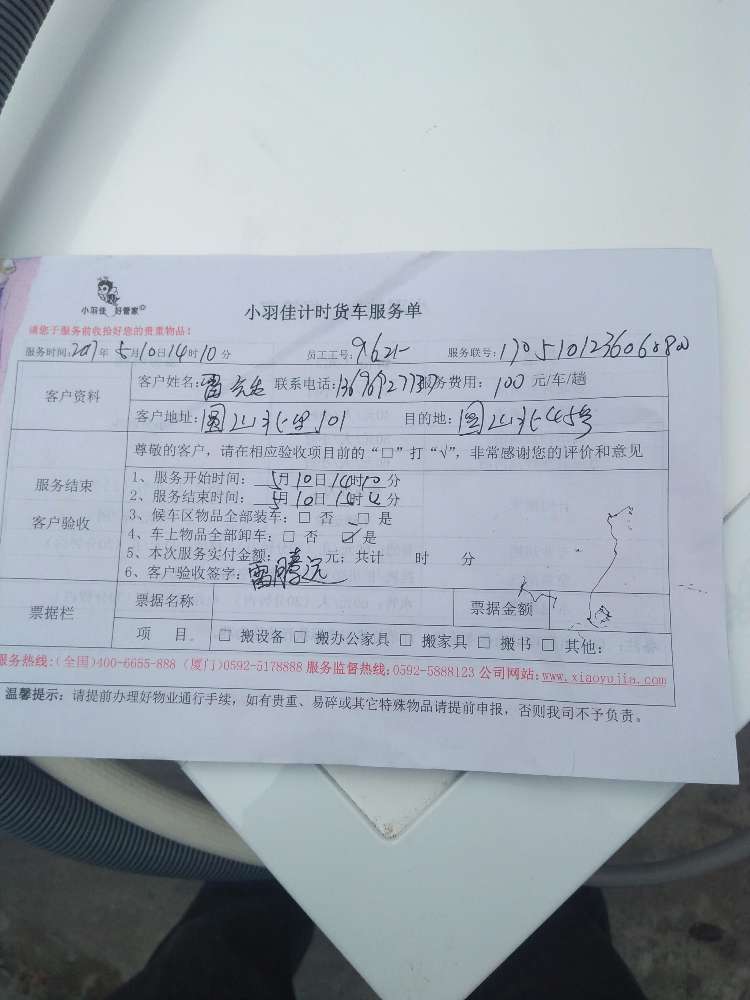 小羽佳 好管家
小羽佳计时货车服务单
请您于服务前收捡好您的贵重物品!
服务时间:2017年5月10日14时10分 员工工号: 服务联号:
客户资料
客户姓名:雷先生 联系电话: 服务费用:100元/车/趟
客户地址: 目的地:
尊敬的客户，请在相应验收项目前的“□”打“√”，非常感谢您的评价和意见
服务结束
客户验收
1、服务开始时间:5月10日14时10分
2、服务结束时间:5月10日 时 分
3、候车区物品全部装车:□ 否 □ 是
4、车上物品全部卸车:□ 否 ☑ 是
5、本次服务实付金额: 元; 共计 时 分
6、客户验收签字:雷腾远
票据栏
票据名称 票据金额
项 目. □ 搬设备 □ 搬办公家具 □ 搬家具 □ 搬书 □ 其他:
服务热线:(全国)400-6655-888 (厦门)0592-5178888 服务监督热线:0592-5888123 公司网站:www.xiaoyujia.com
温馨提示: 请提前办理好物业通行手续，如有贵重、易碎或其它特殊物品请提前申报，否则我司不予负责。